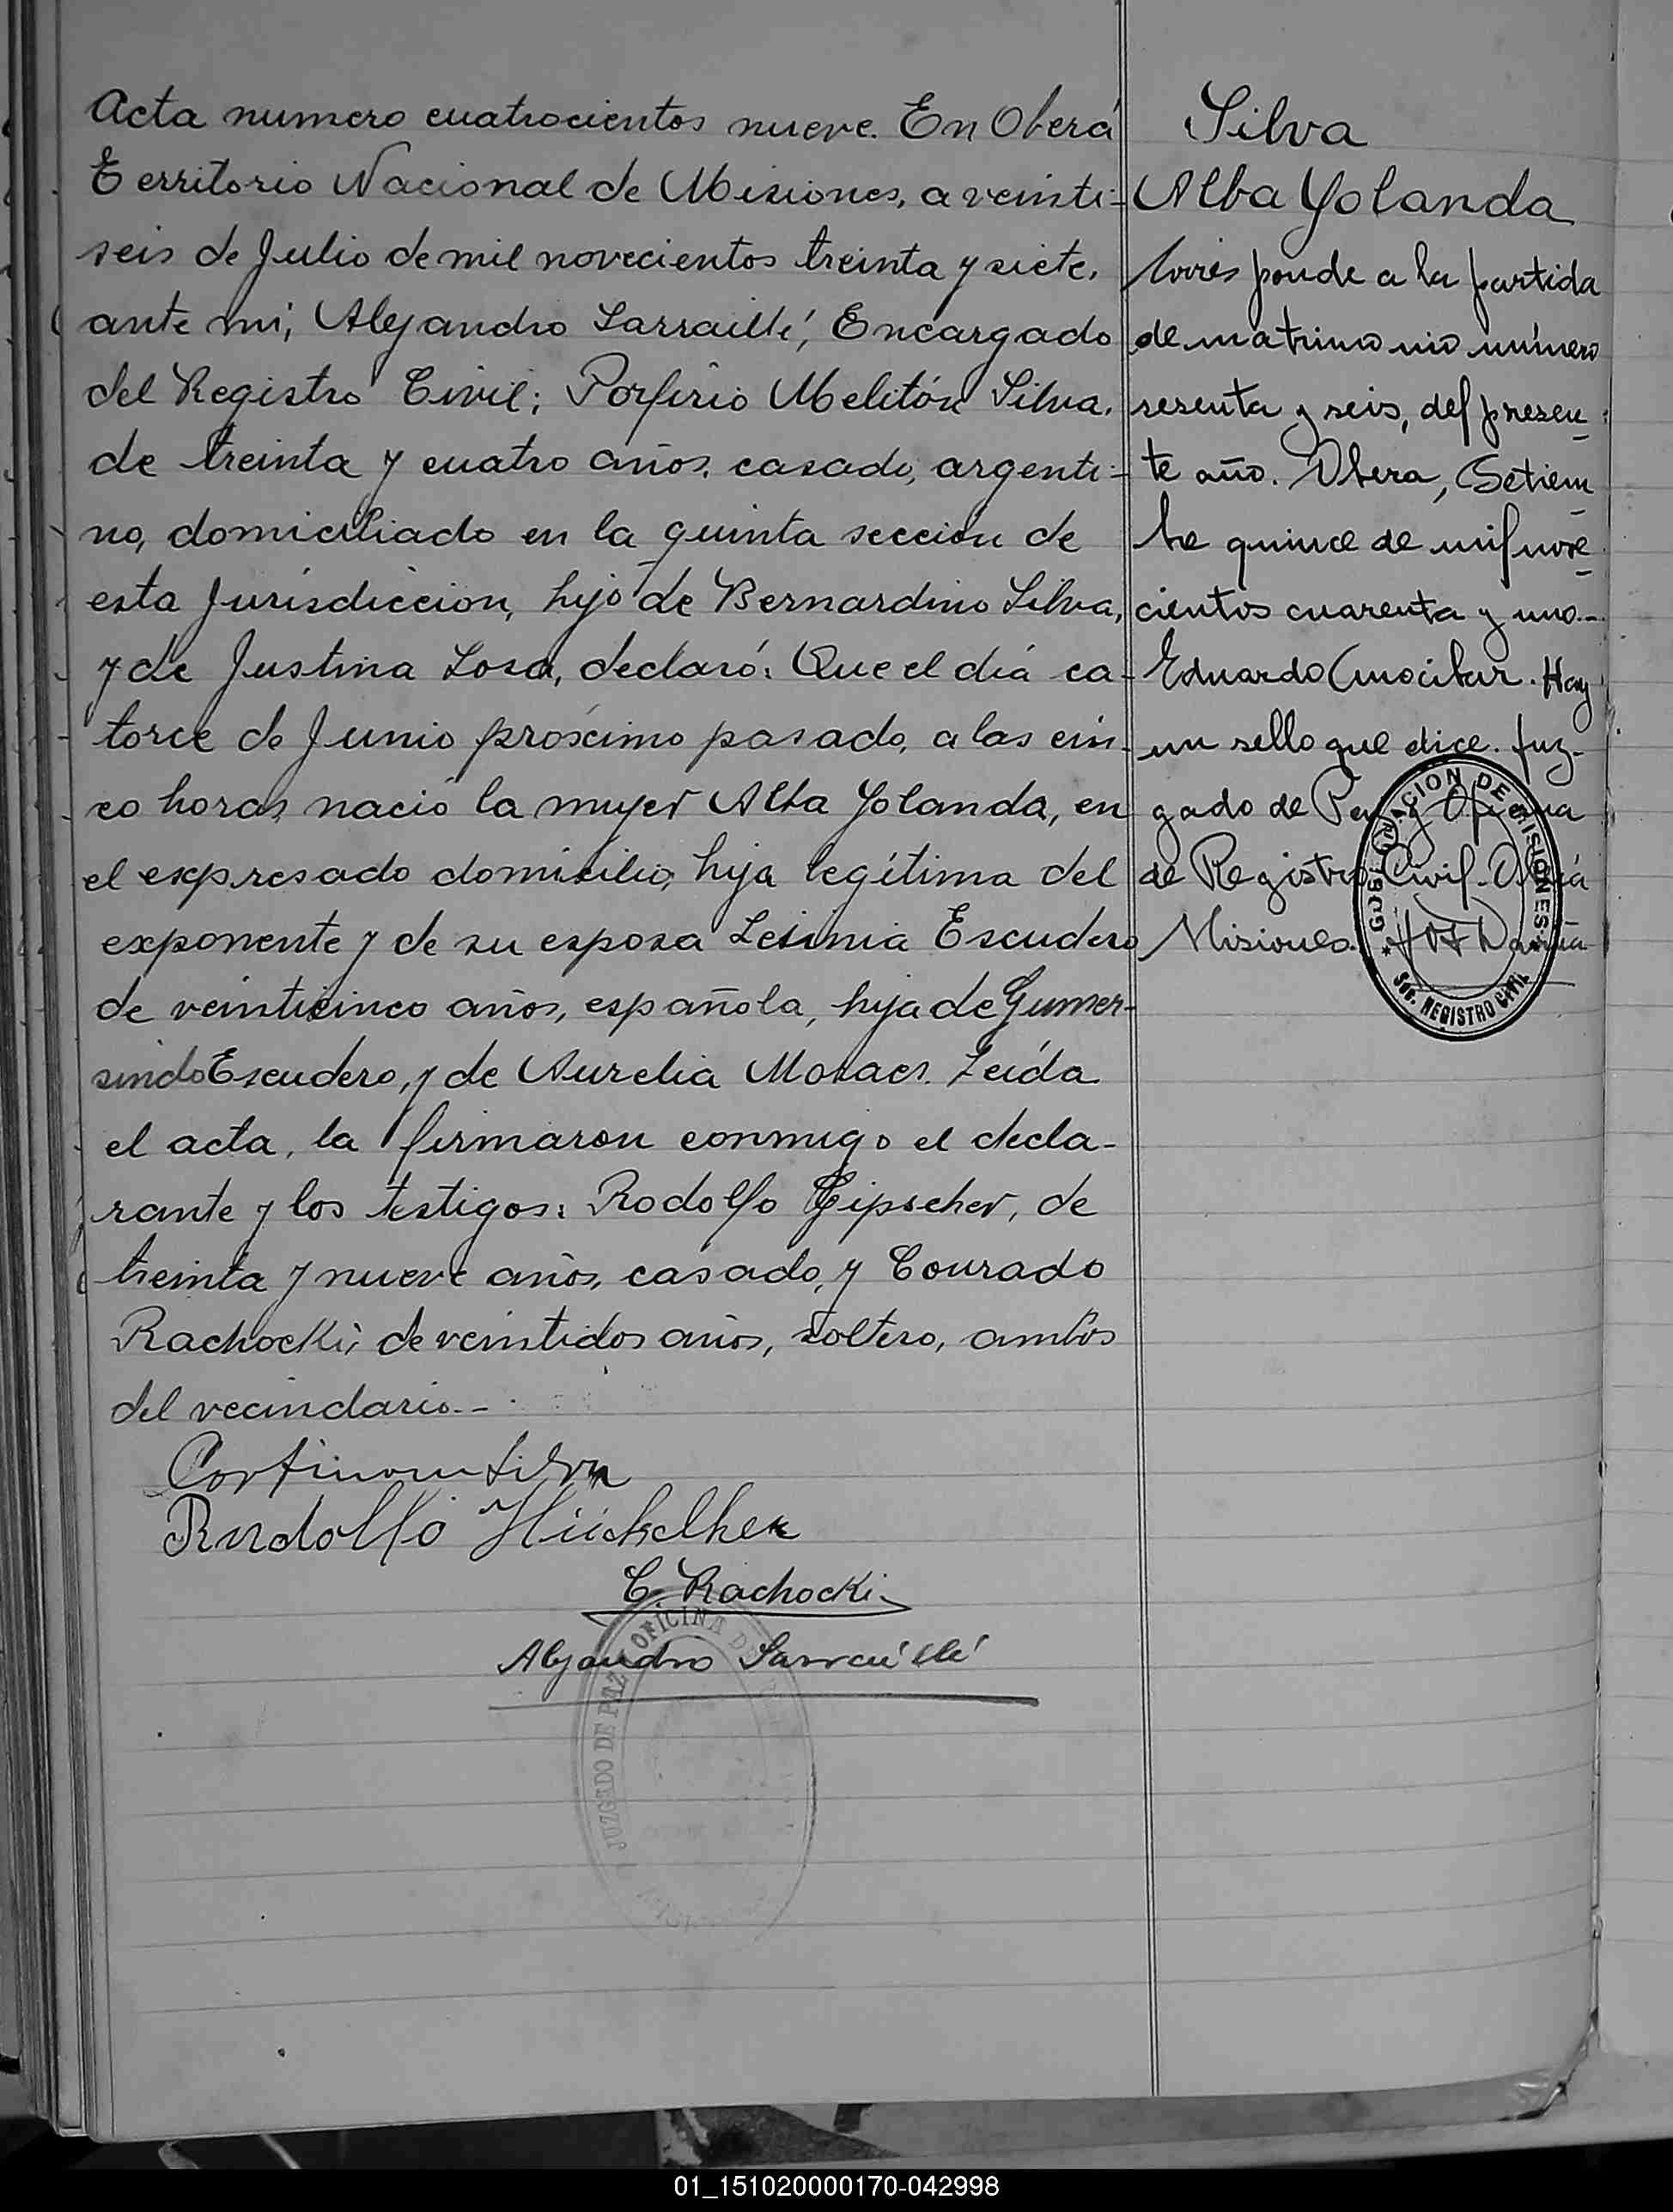 Acta numero cuatrocientos nueve. En Oberá
Territorio Nacional de Misiones, a veinti-
seis de Julio de mil novecientos treinta y siete,
ante mi, Alejandro Sarraillé, Encargado
del Registro Civil; Porfirio Melitón Silva,
de treinta y cuatro años, casado, argenti-
no, domiciliado en la quinta sección de
esta Jurisdiccion, hijo de Bernardino Silva,
y de Justina Sosa, declaró: Que el día ca-
torce de Junio próximo pasado, a las cin-
co horas, nació la mujer Alba Yolanda, en
el expresado domicilio, hija legítima del
exponente y de su esposa Escudero
de veinticinco años, española, hija de Gumer-
sindo Escudero, y de Aurelia Moraes. Leída
el acta, la firmaron conmigo el decla-
rante y los testigos: Rodolfo de
treinta y nueve años, casado, y Conrado
Rachocki, de veintidos años, soltero, ambos
del vecindario.--
Silva
Rudolfo
C. Rachocki
Alejandro Sarraillé
JUZGADO DE PAZ Y OFICINA
Silva
Alba Yolanda
Corresponde a la partida
de matrimonio número
sesenta y seis, del presen-
te año. Obera, Setiem-
bre quince de mil nove-
cientos cuarenta y uno.-
Eduardo Hay
un sello que dice. Juz-
gado de Paz y Oficina
de Registro Civil. Oberá
Misiones.
GOBERNACION DE MISIONES
REGISTRO CIVIL
01_151020000170-042998